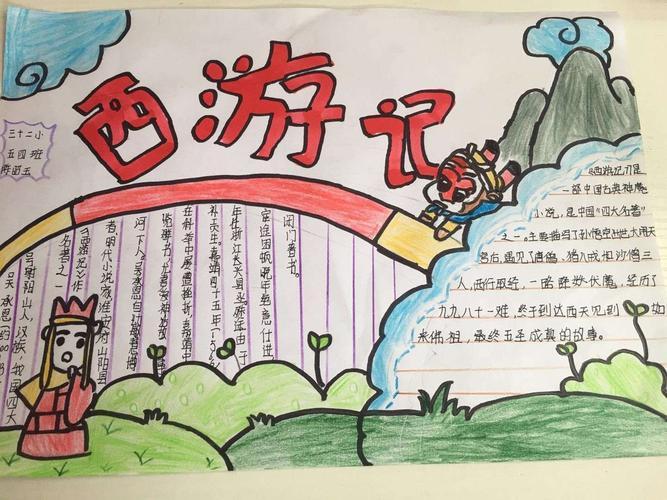 西游记
三十二小
五四班
吴承恩(约
射阳山人,汉族,我国四大
名著之一
《西游记》作
者,明代小说家淮安府山阳县
河下人。吴承恩自幼敏慧博
览群书,尤喜爱神话故
在科举中屡遭挫折,嘉靖中
补贡生。嘉靖四十五年(
年任浙江长兴县丞。殊途由于
宦途困顿,晚年绝意仕进
闭门著书。
《西游记》是
一部中国古典神魔
小说,是中国“四大名著”
之一。主要描写了孙悟空出世大闹天
宫后,遇见了唐僧、猪八戒和沙僧三
人,西行取经,一路降妖伏魔,经历了
九九八十一难,终于到达西天见到如
来佛祖,最终五圣成真的故事。